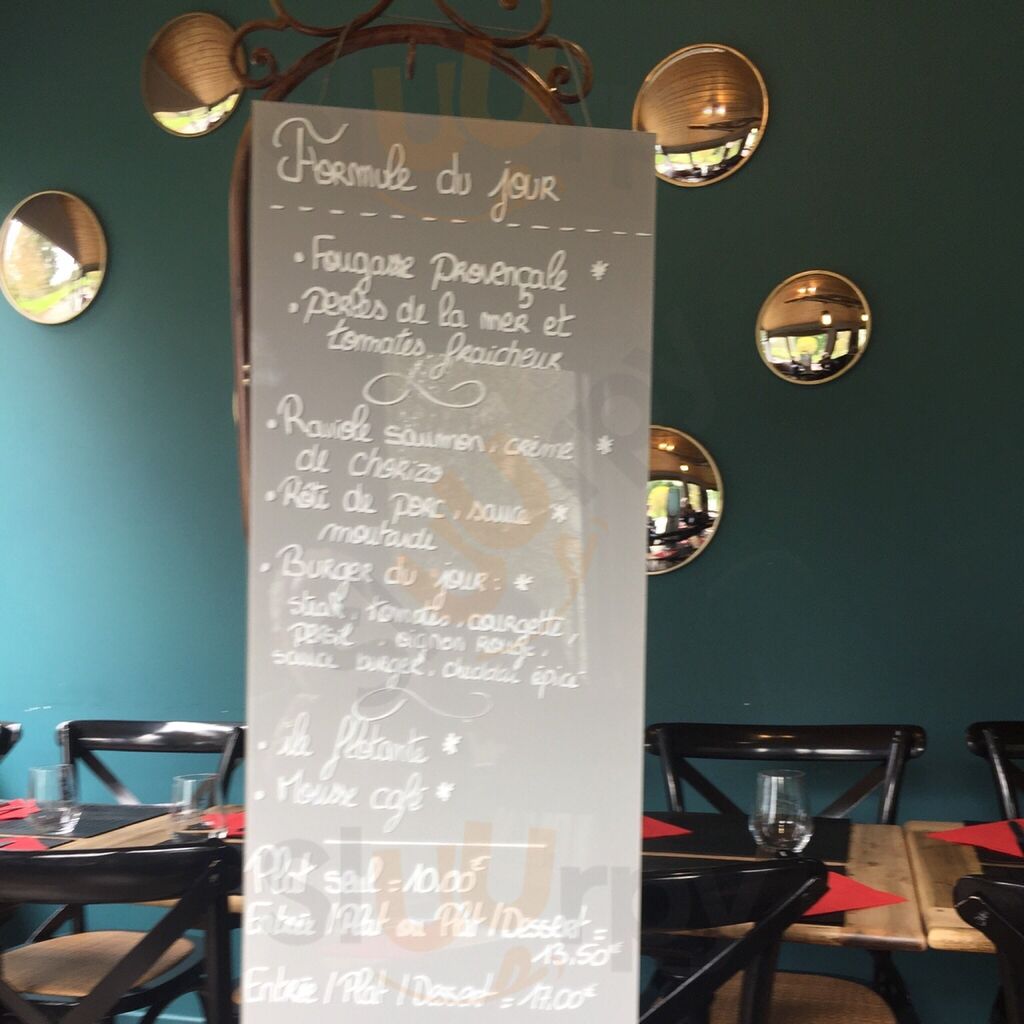 Formule du jour
• Fougasse provençale *
• Perles de la mer et
tomates fraicheur
• Raviole saumon, crème *
de chorizo
• Rôti de porc, sauce *
moutarde
• Burger du jour : *
steak, tomates, courgette,
persil, oignon rouge,
sauce burger, cheddar épicé
• île flotante *
• Mousse café *
Plat seul = 10.00€
Entrée / Plat ou Plat / Dessert =
13.50€
Entrée / Plat / Dessert = 17.00€
Slurrpy